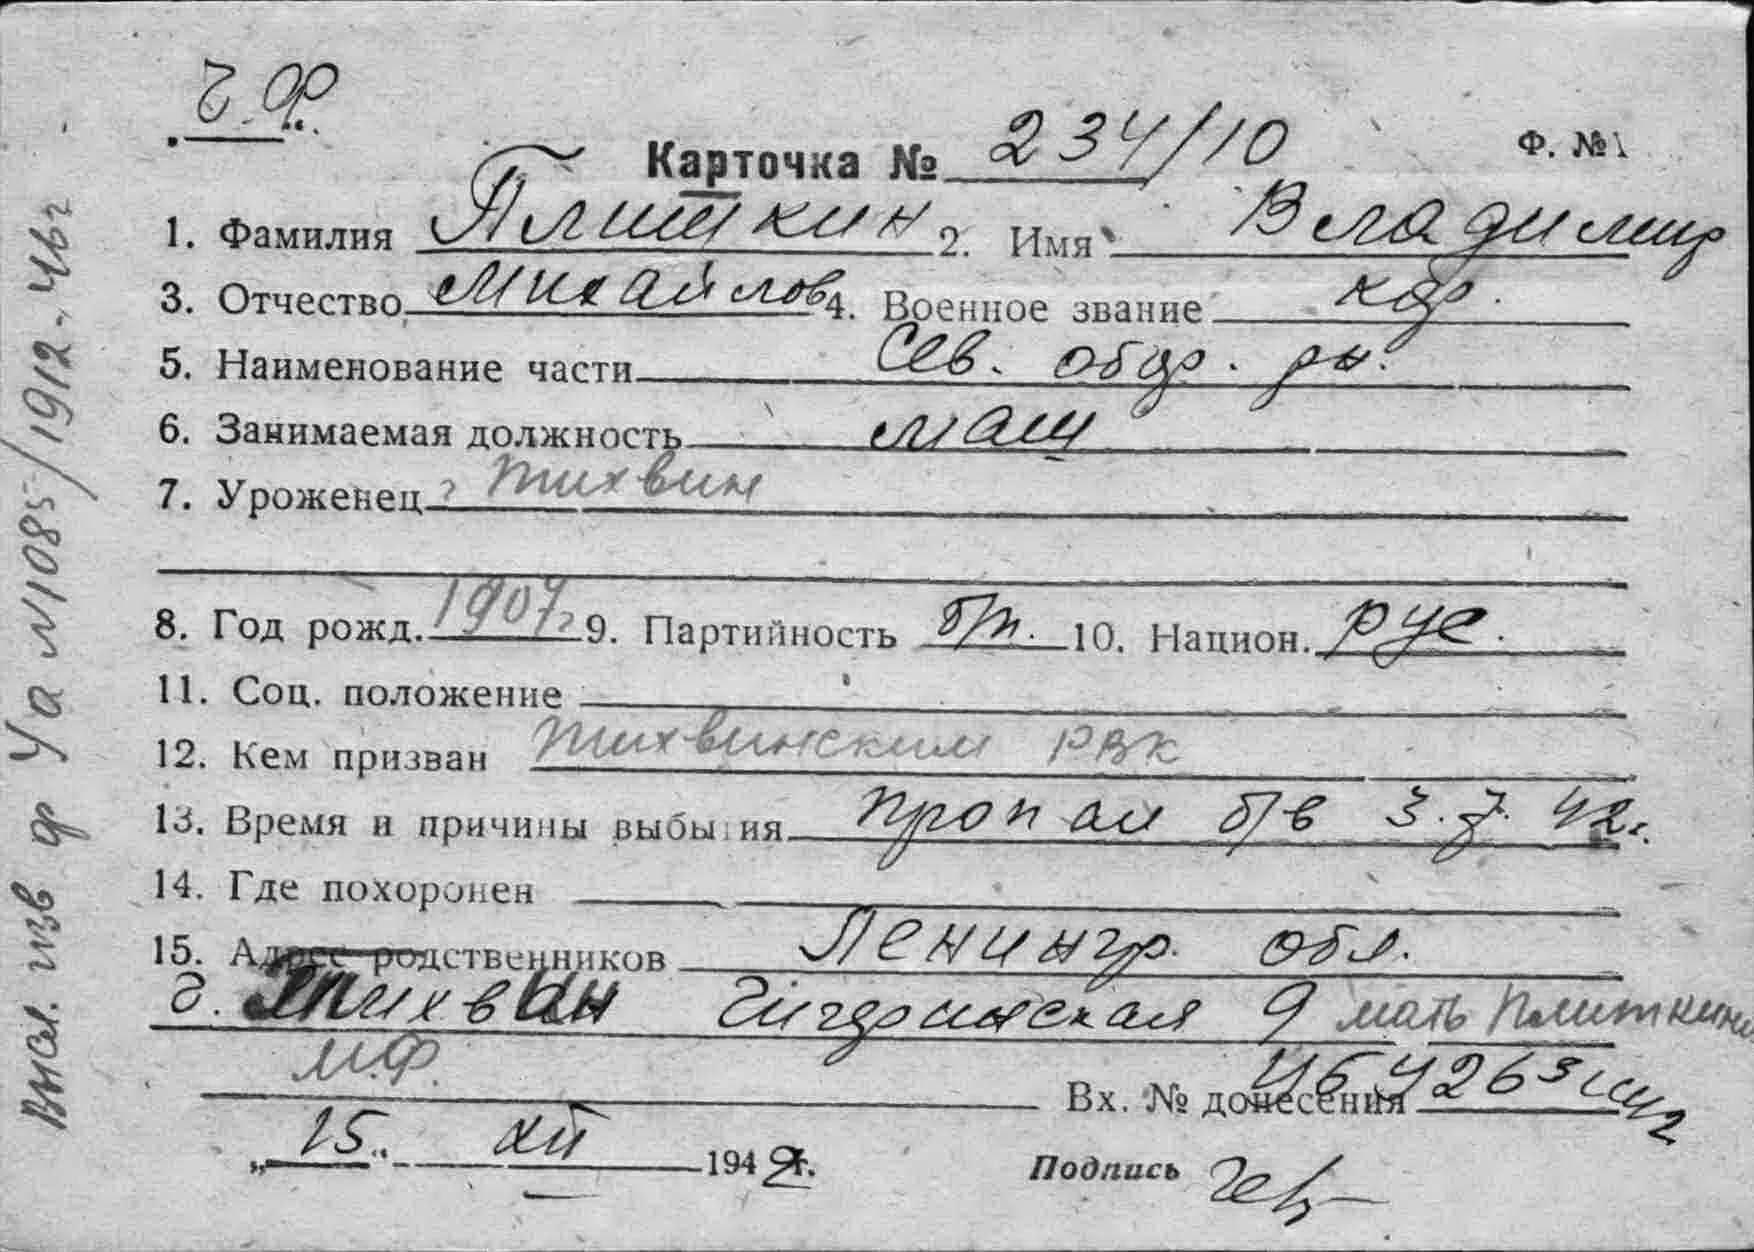 Ч.Ф.
Карточка № 234/10 Ф. №1
1. Фамилия Плиткин 2. Имя Владимир
3. Отчество Михайлов 4. Военное звание
5. Наименование части Сев. обор. рн.
6. Занимаемая должность маш
7. Уроженец г Тихвин
8. Год рожд. 1907г 9. Партийность б/п. 10. Национ. рус.
11. Соц. положение
12. Кем призван Тихвинским РВК
13. Время и причины выбытия пропал б/в 3.7.42г.
14. Где похоронен
15. Адрес родственников Ленингр. обл.
г. Тихвин 9 мать Плиткина
М.Ф.
Вх. № донесения
„15“ XII 1942г. Подпись
Высл. изв ф 4а №1085/1912-46г